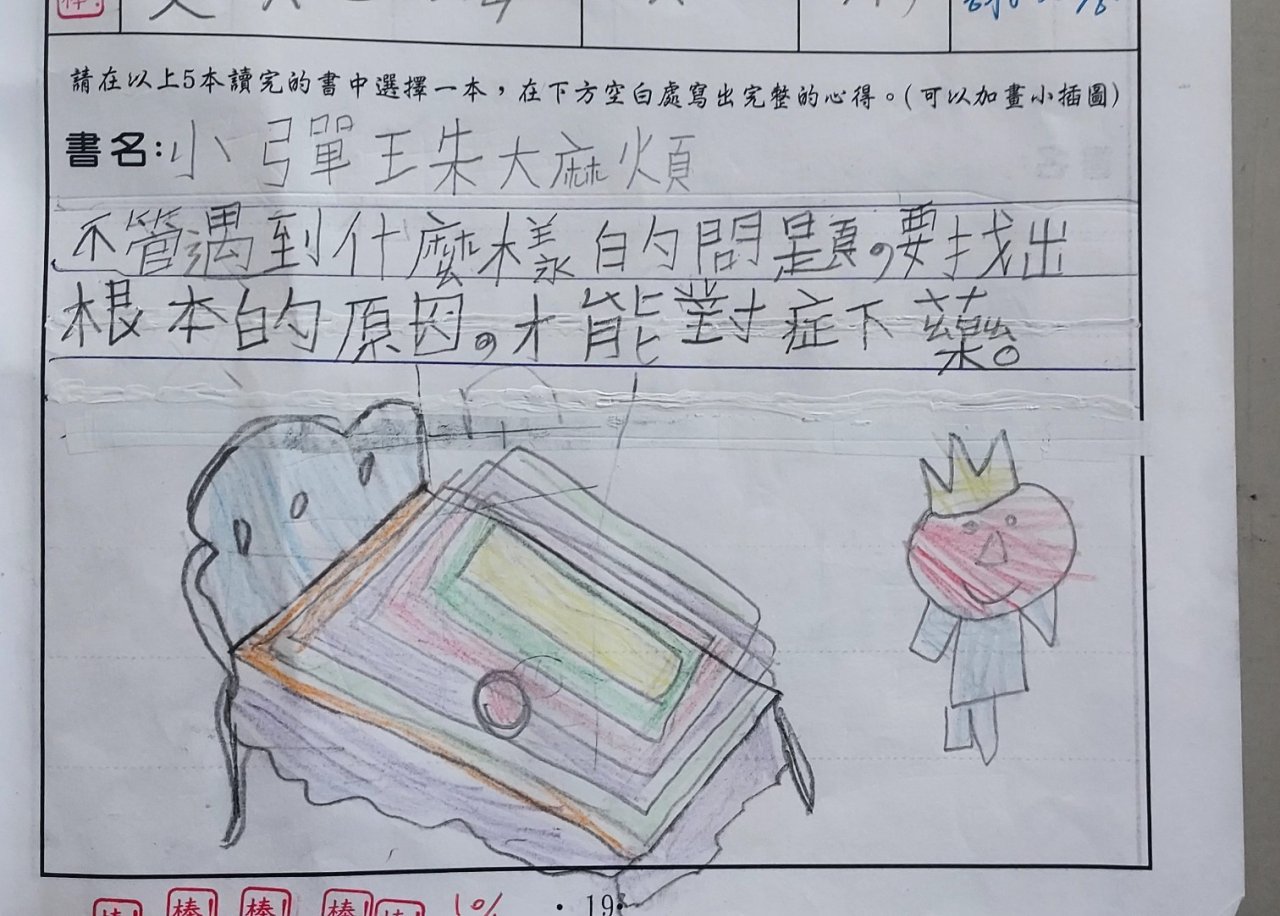 棒!
請在以上5本讀完的書中選擇一本,在下方空白處寫出完整的心得。(可以加畫小插圖)
書名:小彈珠大麻煩
不管遇到什麼樣的問題,要找出
根本的原因,才能對症下藥。
棒! 棒! 棒! 棒! 棒! 10/ ·19·